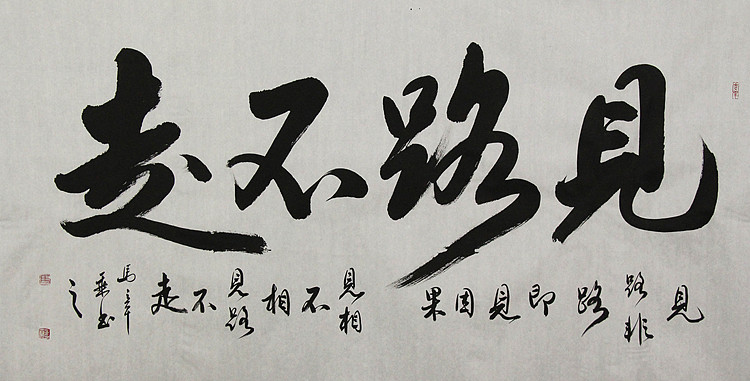 見路不走
見路非路即見因果
見相不相見路不走